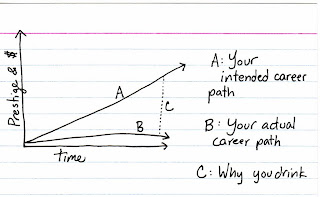 Prestige & $
A
C
B
time
A: Your
intended career
path
B: Your actual
career path
C: Why you drink